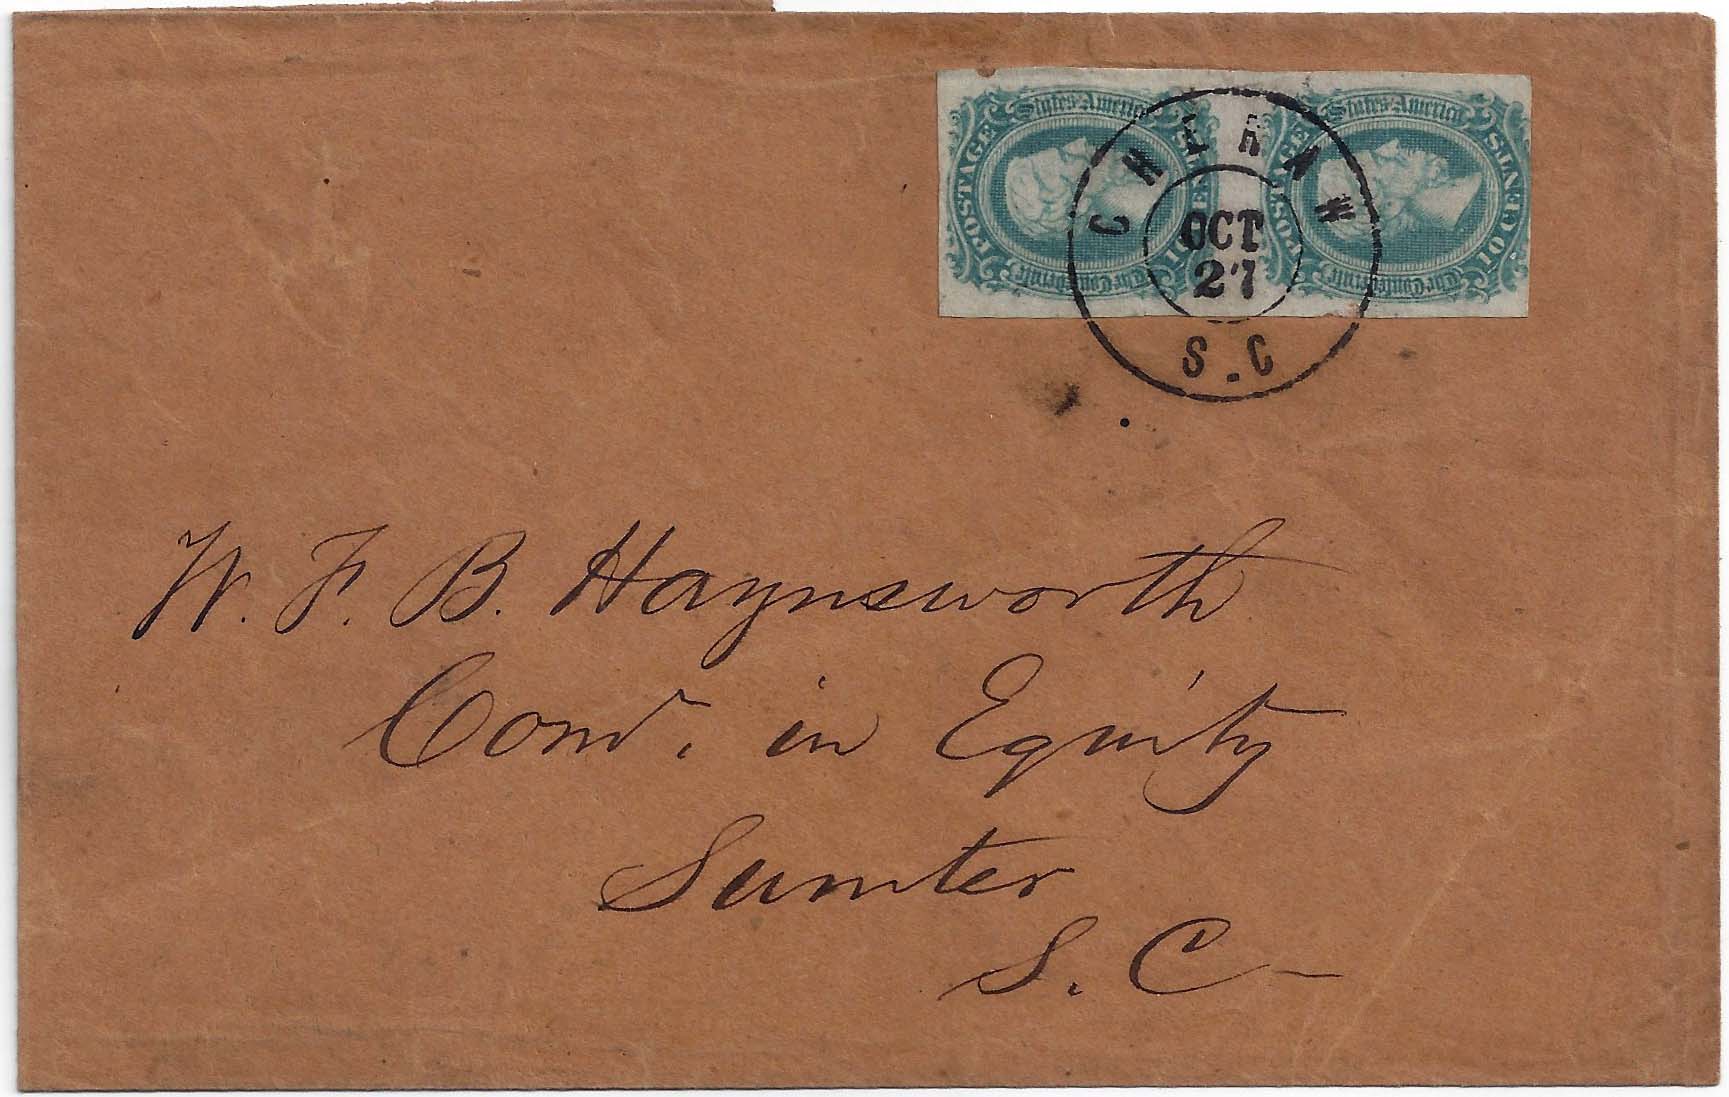 The Confederate States America
POSTAGE
10 CENTS
The Confederate States America
POSTAGE
10 CENTS
CHERAW
OCT
27
S.C
W. F. B. Haynsworth
Comr. in Equity
Sumter
S. C -